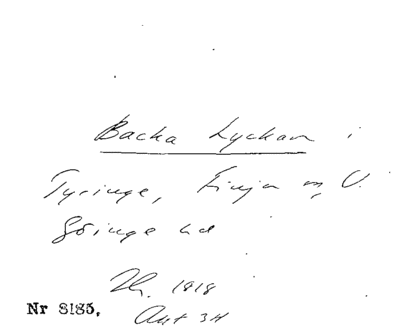 Backa Lyckan i
Tyringe, Finja o, V.
Göinge hd
Th. 1818
Akt 34
Nr 8185.